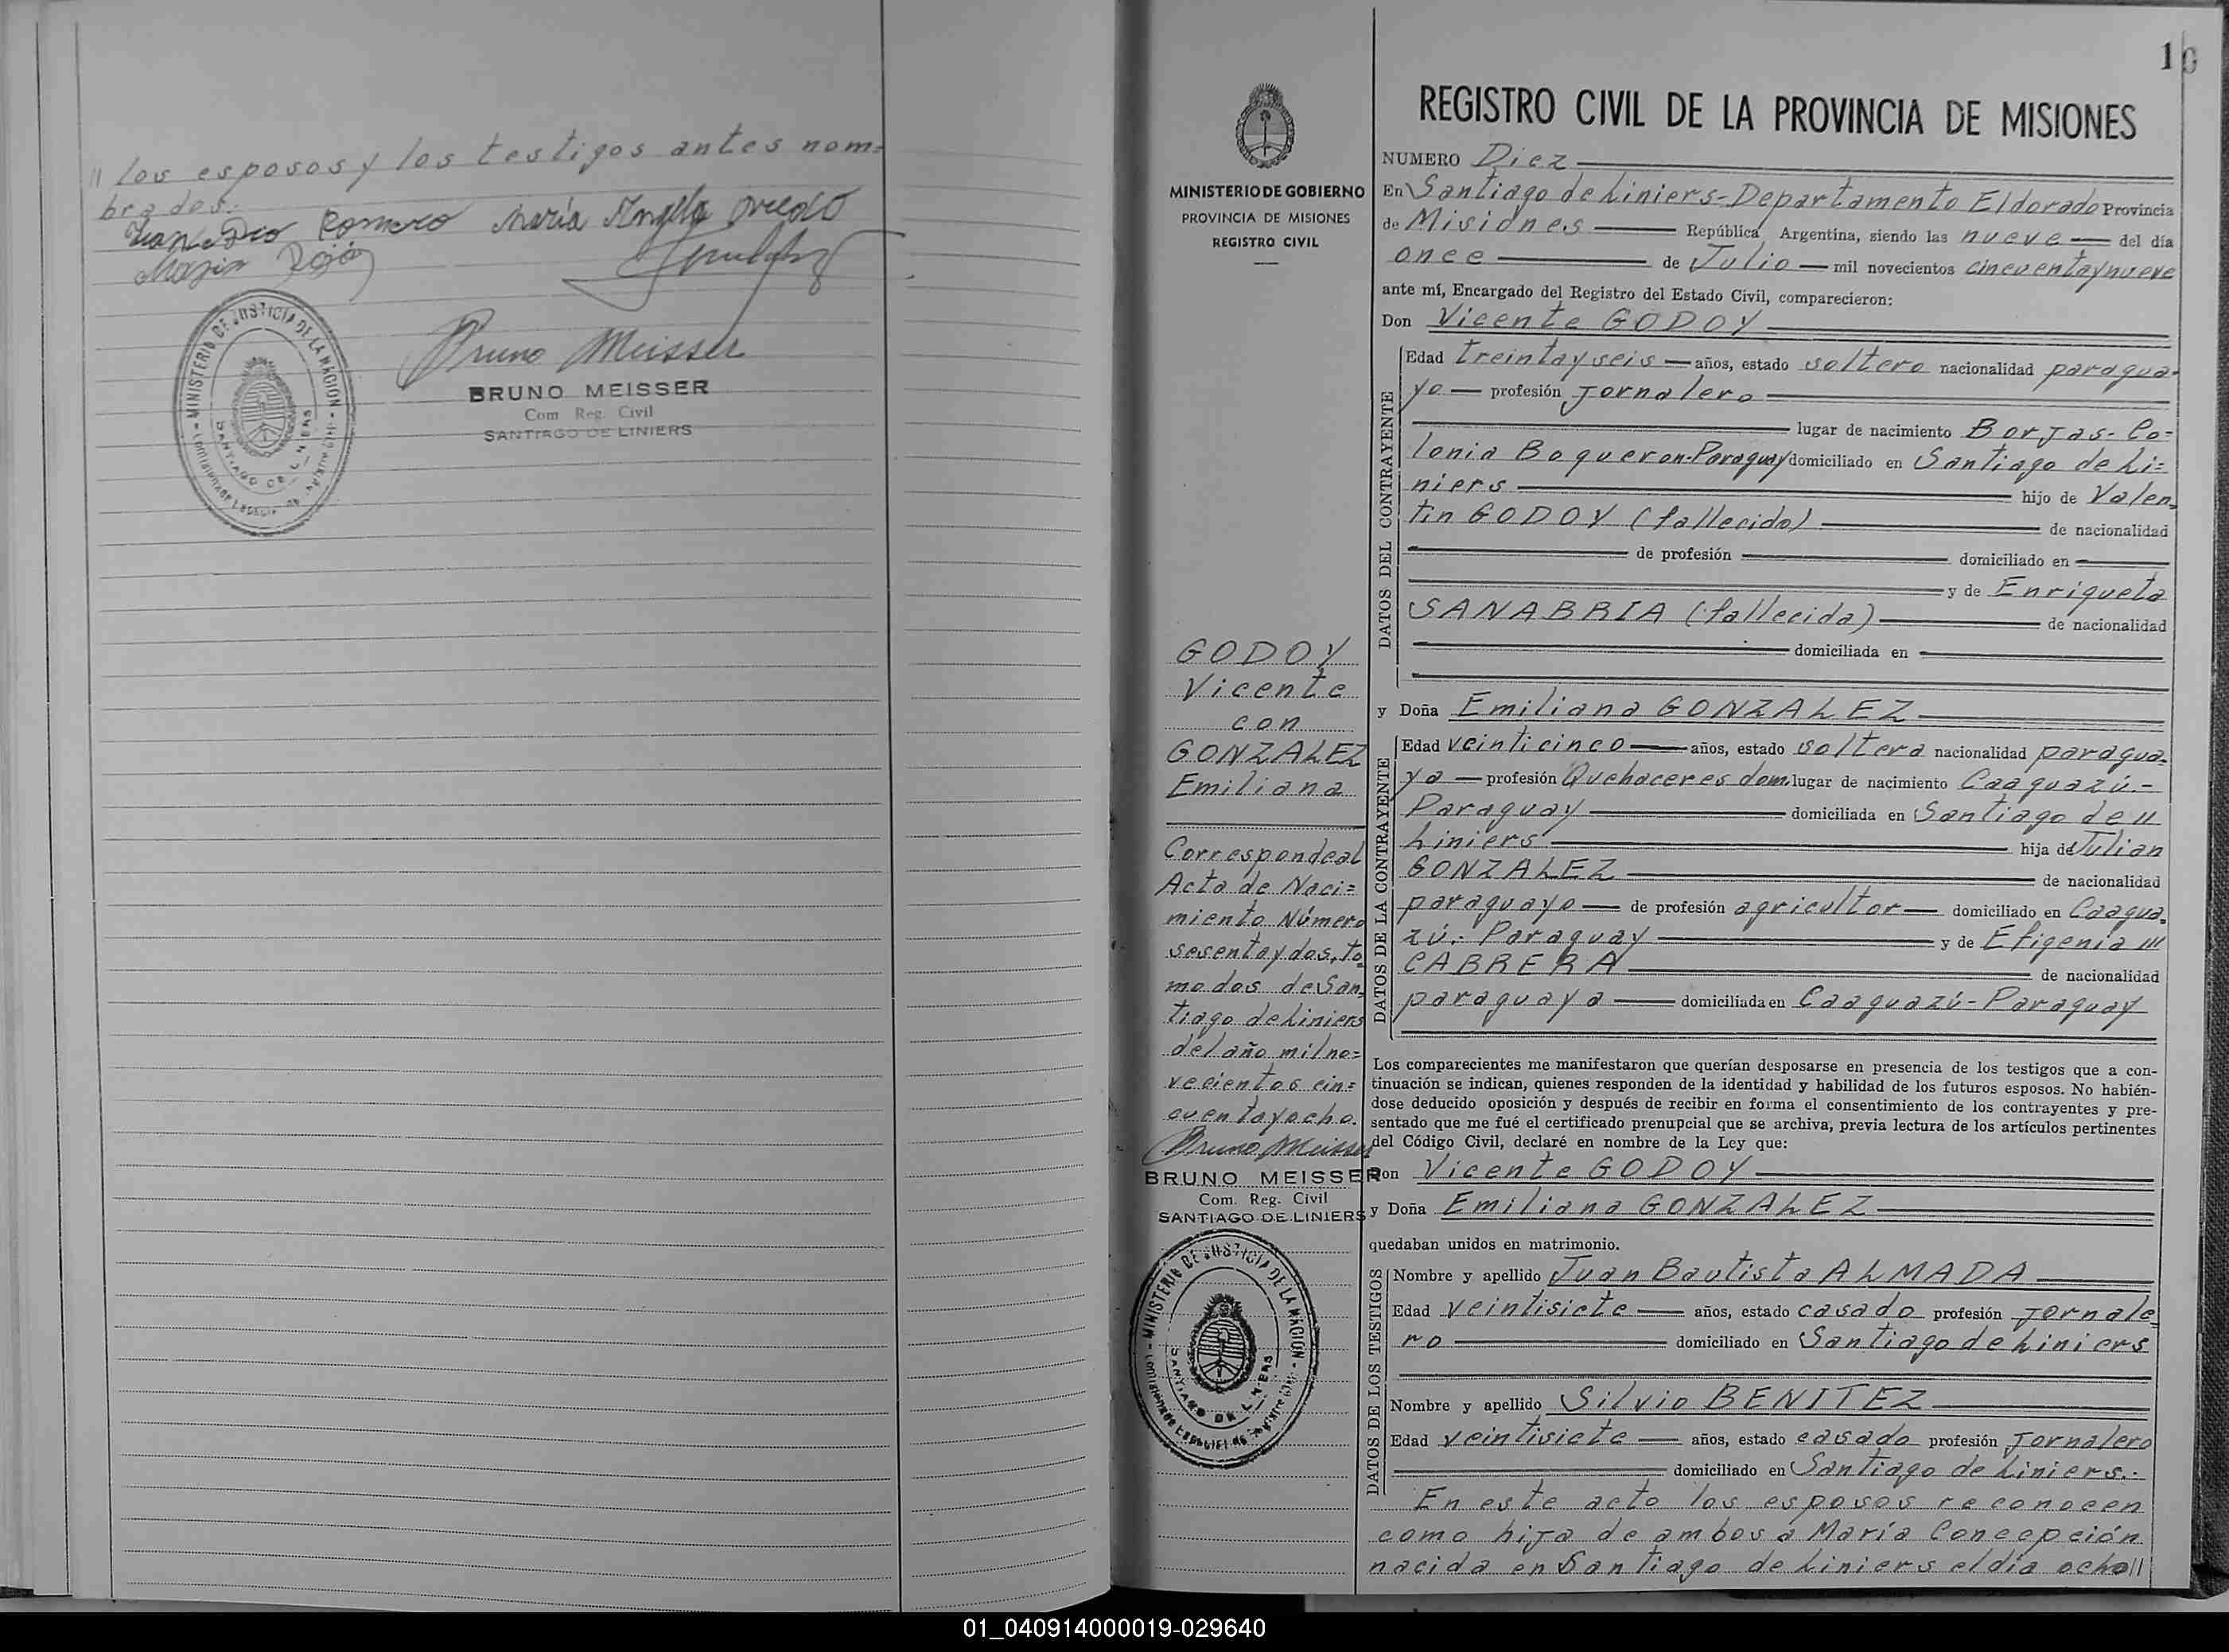 // los esposos y los testigos antes nom=
brados.
Romero María Angela Oviedo
Bruno Meisser
BRUNO MEISSER
Com Reg. Civil
SANTIAGO DE LINIERS
MINISTERIO DE JUSTICIA DE LA NACION
SANTIAGO DE LINIERS
10
MINISTERIO DE GOBIERNO
PROVINCIA DE MISIONES
REGISTRO CIVIL
GODOY
Vicente
con
GONZALEZ
Emiliana
Corresponde al
Acta de Naci=
miento Número
sesenta y dos, to=
mo dos de San=
tiago de Liniers
del año mil no=
vecientos cin=
cuenta y ocho.
Bruno Meisser
BRUNO MEISSER
Com. Reg. Civil
SANTIAGO DE LINIERS
MINISTERIO DE JUSTICIA DE LA NACION
SANTIAGO DE LINIERS
REGISTRO CIVIL DE LA PROVINCIA DE MISIONES
NUMERO Diez
En Santiago de Liniers-Departamento Eldorado Provincia
de Misiones República Argentina, siendo las nueve del día
once de Julio mil novecientos cincuenta y nueve
ante mí, Encargado del Registro del Estado Civil, comparecieron:
Don Vicente GODOY
DATOS DEL CONTRAYENTE
Edad treinta y seis años, estado soltero nacionalidad paragua-
yo profesión Jornalero
lugar de nacimiento Borjas- Co=
lonia Boqueron-Paraguay domiciliado en Santiago de Li=
niers hijo de Valen=
tin GODOY (fallecido) de nacionalidad
de profesión domiciliado en
y de Enriqueta
SANABRIA (fallecida) de nacionalidad
domiciliada en
y Doña Emiliana GONZALEZ
DATOS DE LA CONTRAYENTE
Edad veinticinco años, estado soltera nacionalidad paragua-
ya profesión Quehaceres dom. lugar de nacimiento Caaguazú.-
Paraguay domiciliada en Santiago de //
Liniers hija de Julian
GONZALEZ de nacionalidad
paraguayo de profesión agricultor domiciliado en Caagua=
zú.- Paraguay y de Efigenia ///
CABRERA de nacionalidad
paraguaya domiciliada en Caaguazú-Paraguay
Los comparecientes me manifestaron que querían desposarse en presencia de los testigos que a con-
tinuación se indican, quienes responden de la identidad y habilidad de los futuros esposos. No habién-
dose deducido oposición y después de recibir en forma el consentimiento de los contrayentes y pre-
sentado que me fué el certificado prenupcial que se archiva, previa lectura de los artículos pertinentes
del Código Civil, declaré en nombre de la Ley que:
Don Vicente GODOY
y Doña Emiliana GONZALEZ
quedaban unidos en matrimonio.
DATOS DE LOS TESTIGOS
Nombre y apellido Juan Bautista ALMADA
Edad veintisiete años, estado casado profesión Jornale=
ro domiciliado en Santiago de Liniers
Nombre y apellido Silvio BENITEZ
Edad veintisiete años, estado casado profesión Jornalero
domiciliado en Santiago de Liniers.-
En este acto los esposos reconocen
como hija de ambos a María Concepción
nacida en Santiago de Liniers el día ocho//
01_040914000019-029640